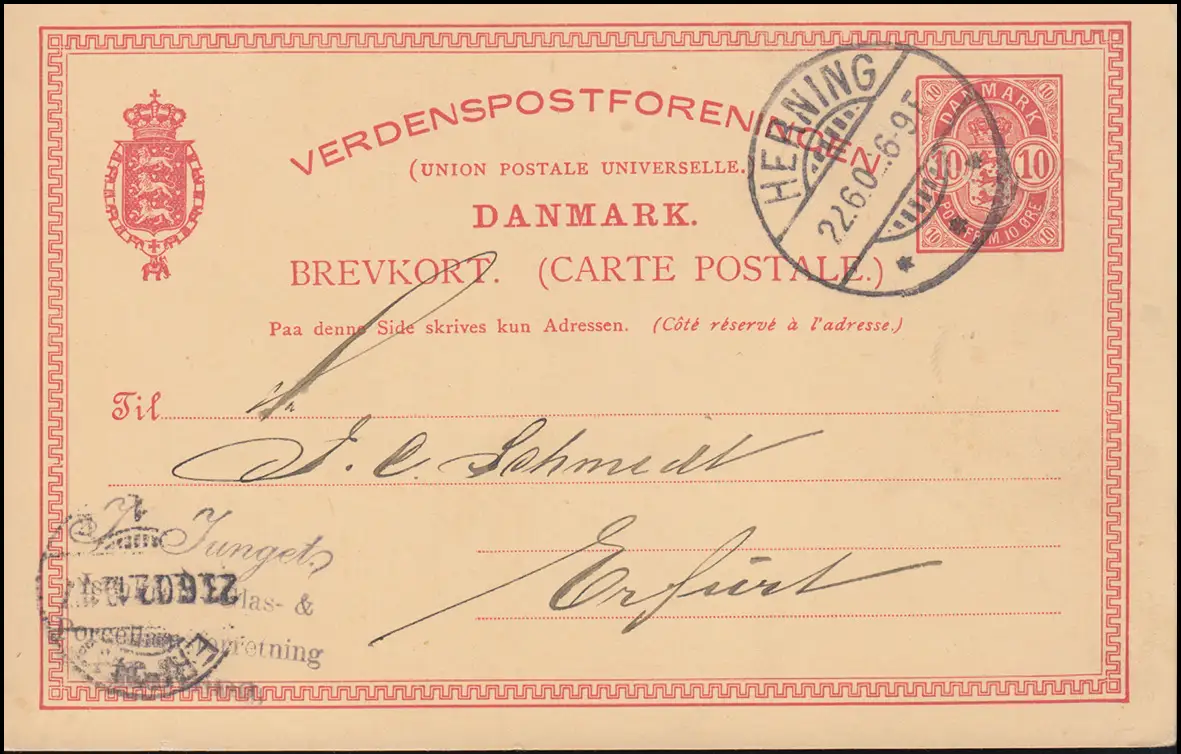 VERDENSPOSTFORENINGEN
(UNION POSTALE UNIVERSELLE.)
DANMARK.
BREVKORT. (CARTE POSTALE.)
Paa denne Side skrives kun Adressen. (Côté réservé à l'adresse.)
HERNING
22.6.0 6-9 F
DANMARK
10 10
10 10 10 10
POSTFRIM. 10 ØRE
Til
Hr
J. C. Schmidt
Erfurt
Junget
Glas- &
Porcellainsforretning